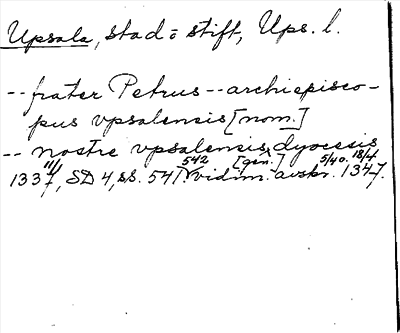 Upsala, stad o stift, Ups. l.
-- frater Petrus -- archiepisco-
pus vpsalensis [nom.]
-- nostre vpsalensis dyocesis
[gen.]
11/1 1337, SD 4, ss. 541. 542 vidim. avskr. 5/40. 18/4 1347.